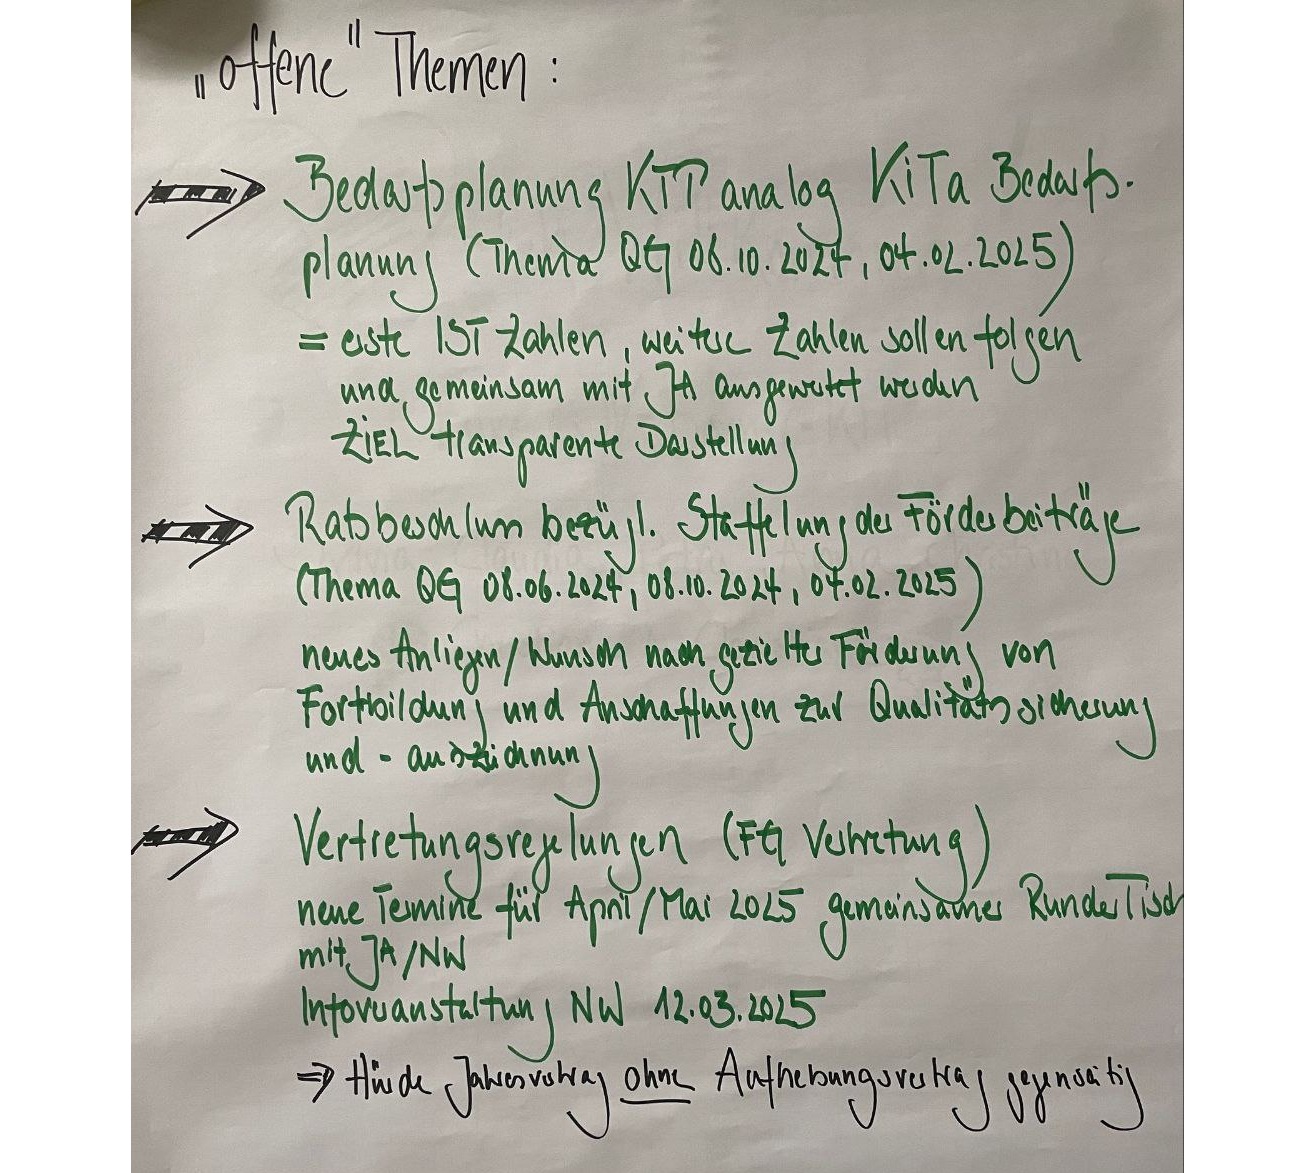 „offene" Themen:
Bedarfsplanung KTP analog KiTa Bedarfs-
planung (Thema QG 08.10.2024, 04.02.2025)
= erste IST Zahlen, weitere Zahlen sollen folgen
und gemeinsam mit JA ausgewertet werden
ZiEL transparente Darstellung
Ratsbeschluss bezügl. Staffelung der Förderbeiträge
(Thema QG 08.06.2024, 08.10.2024, 04.02.2025)
neues Anliegen/Wunsch nach gezielter Förderung von
Fortbildung und Anschaffungen zur Qualitätssicherung
und - auszeichnung
Vertretungsregelungen (FG Vertretung)
neue Termine für April/Mai 2025 gemeinsamer Runder Tisch
mit JA/NW
Infoveranstaltung NW 12.03.2025
⇒ Hürde Jahresvertrag ohne Aufhebungsvertrag gegenseitig